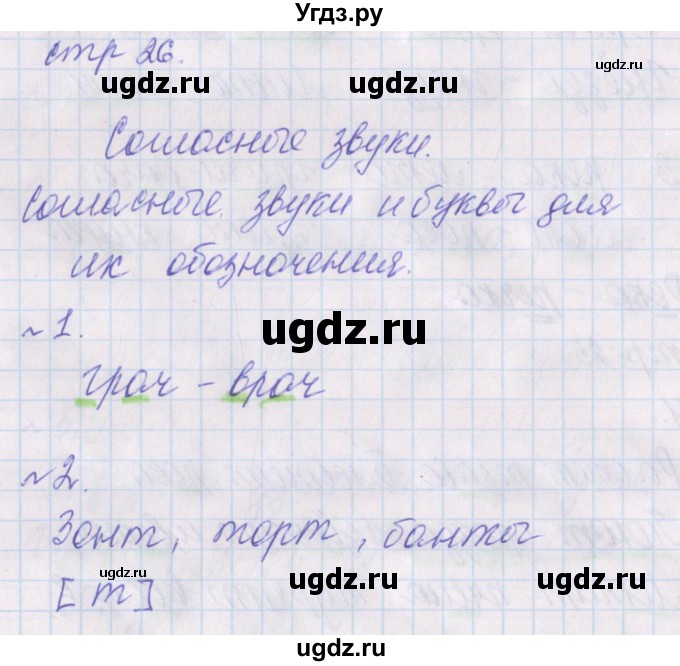 Угдз.ру
стр 26.
ugdz.ru
ugdz.ru
ugdz.ru
Согласные звуки.
Согласные звуки и буквы для
их обозначения.
№1.
ugdz.ru
ugdz.ru
грач - врач
№2.
Зонт, торт, банты
[т]
ugdz.ru
ugdz.ru
ugdz.ru
ugdz.ru